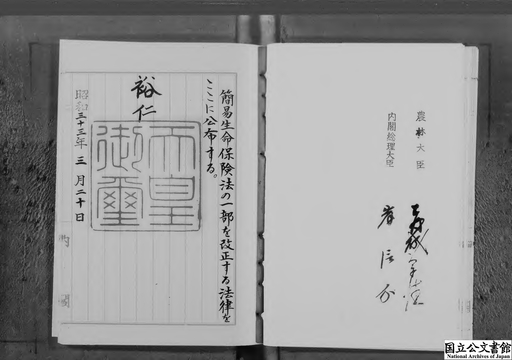 農林大臣
赤城宗徳
内閣総理大臣
岸信介
簡易生命保険法の一部を改正する法律を
ここに公布する。
裕仁
天皇
御璽
昭和三十三年三月二十日
内閣
国立公文書館
National Archives of Japan